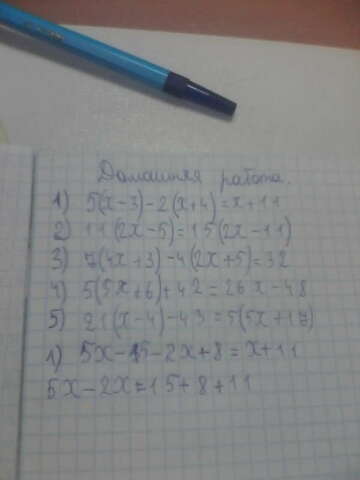 Домашняя работа.
1) 5(x-3)-2(x+4)=x+11
2) 11(2x-5)=15(2x-11)
3) 7(4x+3)-4(2x+5)=32
4) 5(5x+6)+42=26x-48
5) 21(x-4)-43=5(5x+17)
1) 5x-15-2x+8=x+11
5x-2x=15+8+11